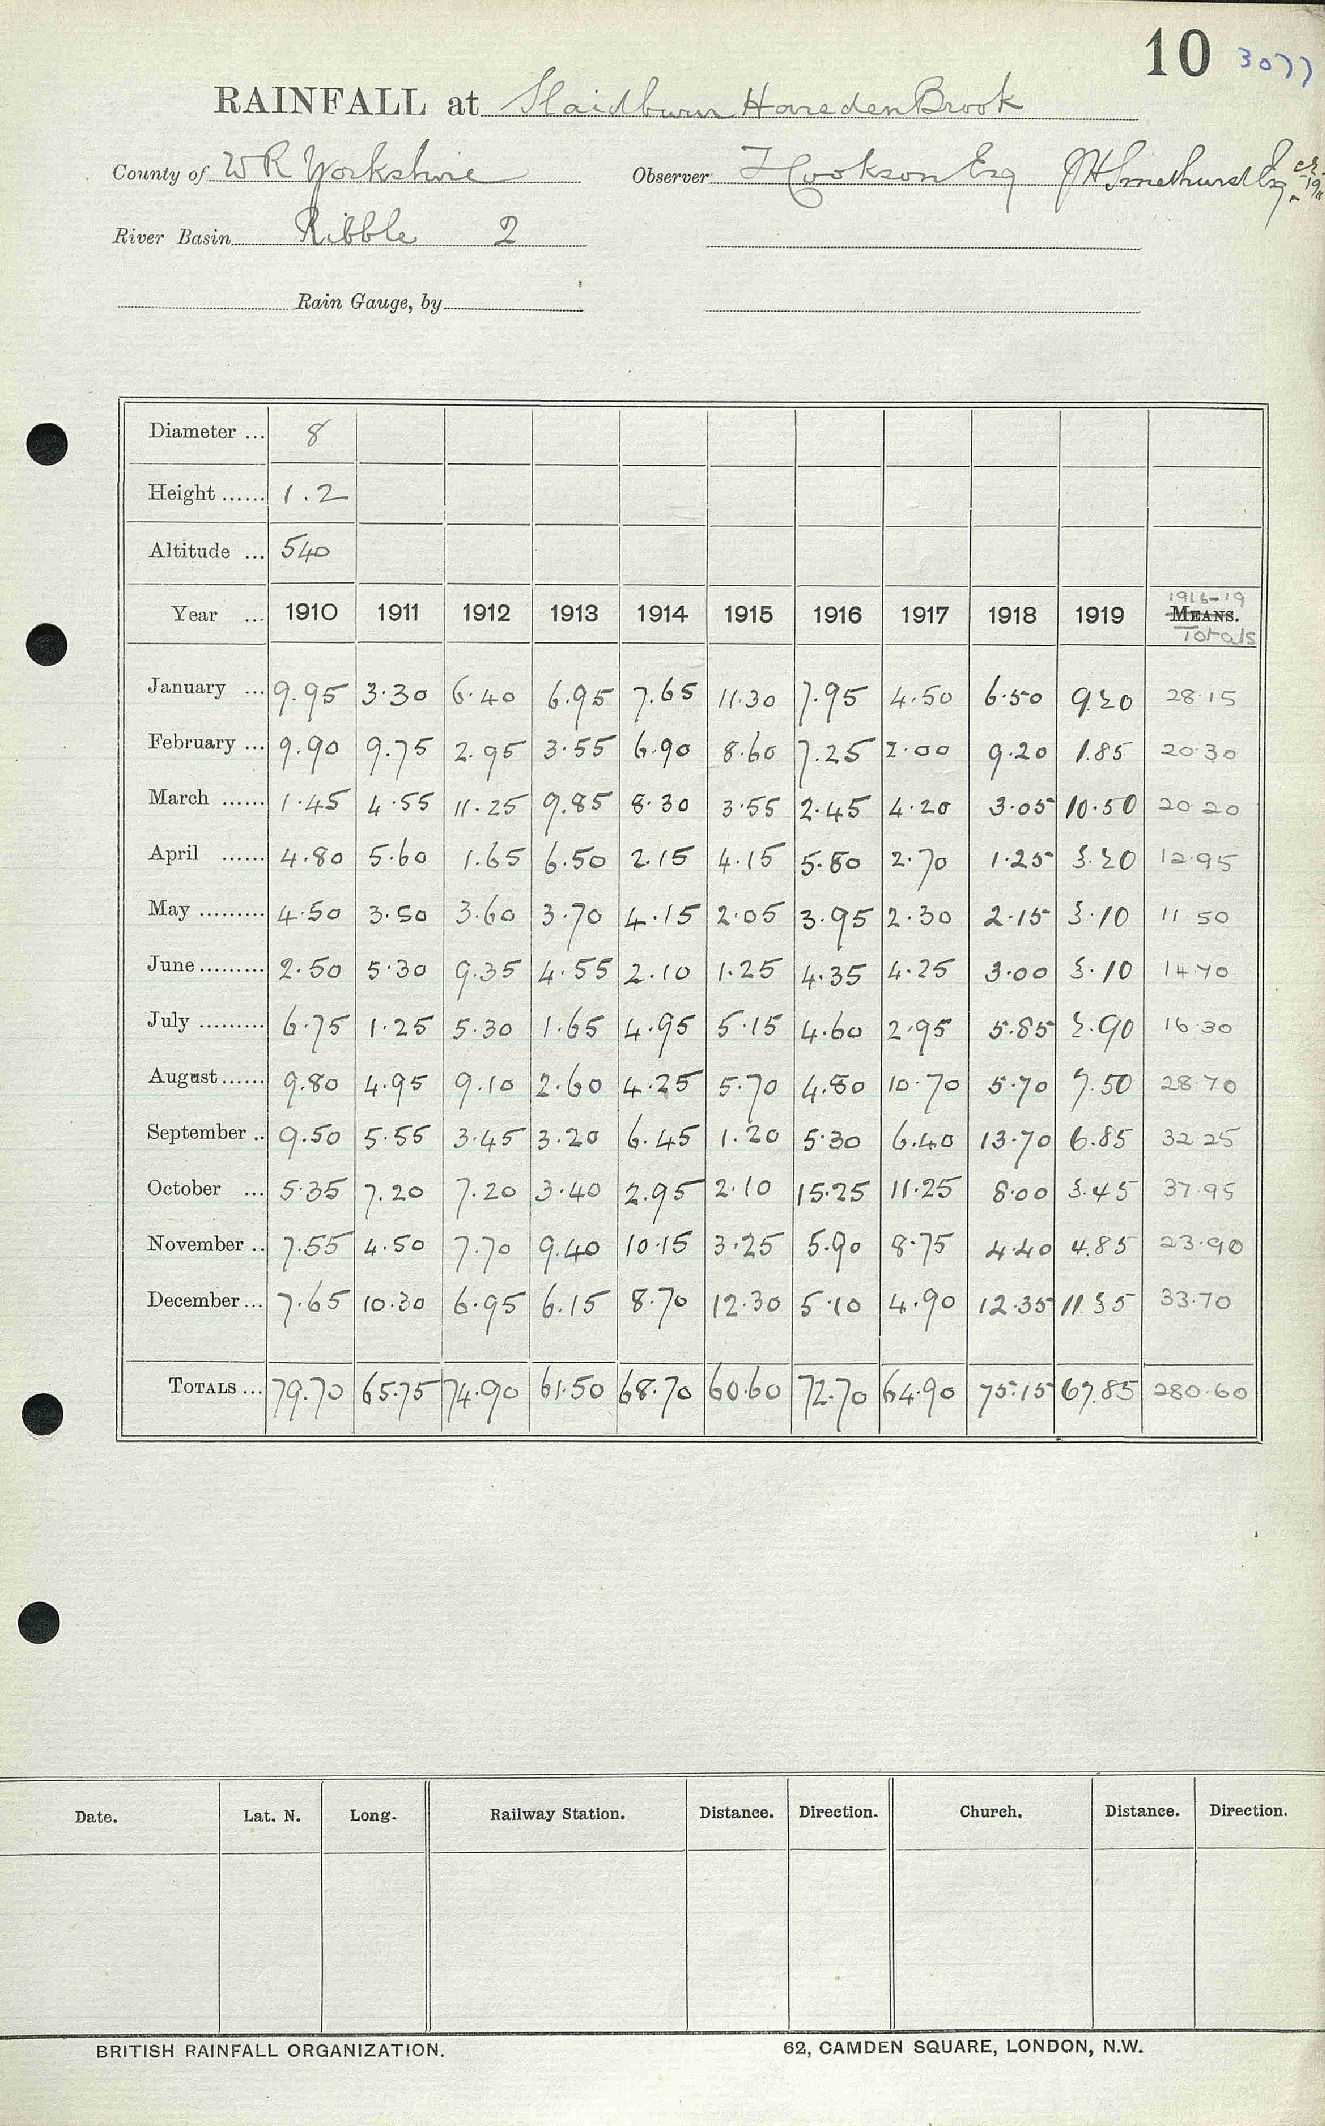 10 3077
RAINFALL at Slaidburn Hareden Brook
County of W R Yorkshire Observer T Cookson Esq JH Smethurst Esq
River Basin Ribble 2
Rain Gauge, by
Diameter ... 8
Height ...... 1.2
Altitude ... 540
1916-19
Year ... 1910 1911 1912 1913 1914 1915 1916 1917 1918 1919 MEANS.
Totals
January ... 9.95 3.30 6.40 6.95 7.65 11.30 7.95 4.50 6.50 9.20 28.15
February ... 9.90 9.75 2.95 3.55 6.90 8.60 7.25 2.00 9.20 1.85 20.30
March ...... 1.45 4.55 11.25 9.85 8.30 3.55 2.45 4.20 3.05 10.50 20.20
April ...... 4.80 5.60 1.65 6.50 2.15 4.15 5.80 2.70 1.25 3.20 12.95
May ......... 4.50 3.50 3.60 3.70 4.15 2.05 3.95 2.30 2.15 3.10 11.50
June ......... 2.50 5.30 9.35 4.55 2.10 1.25 4.35 4.25 3.00 3.10 14.70
July ......... 6.75 1.25 5.30 1.65 4.95 5.15 4.60 2.95 5.85 2.90 16.30
August ...... 9.80 4.95 9.10 2.60 4.25 5.70 4.80 10.70 5.70 7.50 28.70
September .. 9.50 5.55 3.45 3.20 6.45 1.20 5.30 6.40 13.70 6.85 32.25
October ... 5.35 7.20 7.20 3.40 2.95 2.10 15.25 11.25 8.00 3.45 37.95
November .. 7.55 4.50 7.70 9.40 10.15 3.25 5.90 8.75 4.40 4.85 23.90
December ... 7.65 10.30 6.95 6.15 8.70 12.30 5.10 4.90 12.35 11.35 33.70
TOTALS ... 79.70 65.75 74.90 61.50 68.70 60.60 72.70 64.90 75.15 67.85 280.60
Date. Lat. N. Long. Railway Station. Distance. Direction. Church. Distance. Direction.
BRITISH RAINFALL ORGANIZATION. 62, CAMDEN SQUARE, LONDON, N.W.